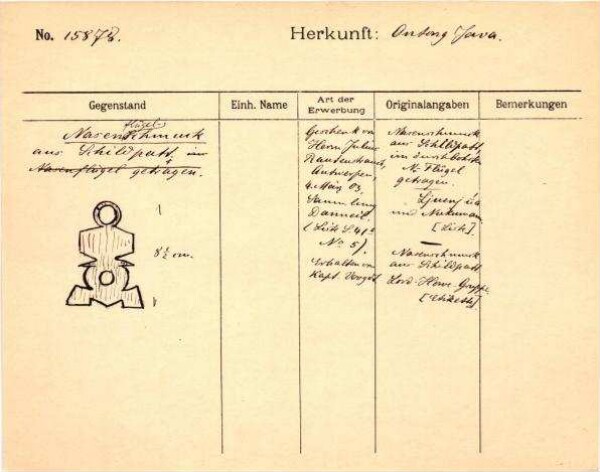 No. 15878.
Herkunft: Ontong Java.
Gegenstand
Einh. Name
Art der Erwerbung
Originalangaben
Bemerkungen
flügel
Nasenschmuck
aus Schildpatt, im
Nasenflügel getragen.
8½ cm.
Geschenk von
Herrn Julius
Rautenstrauch,
Antwerpen,
4. März 03,
Sammlung
Danneil,
(Liste S. 41
No 5).
Erhalten von
Kapt. Voogdt
Nasenschmuck
aus Schildpatt,
im durchbohrten
N-Flügel
getragen.
Ljueniua
und Nukuman.
[Liste].
Nasenschmuck
aus Schildpatt
Lord-Howe-Gruppe
[Etikett]